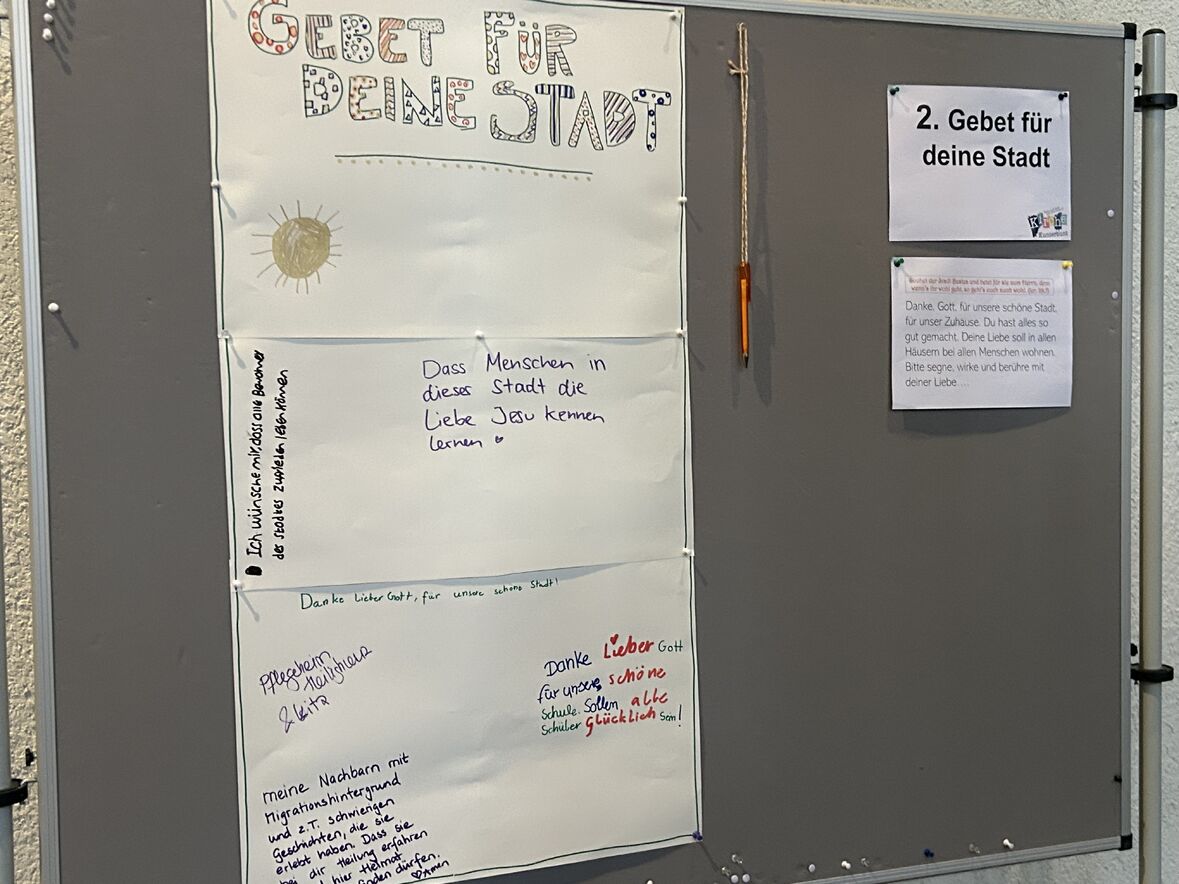 GEBET FÜR
DEINE STADT
Ich wünsche mir, dass alle Bewohner
des Stadtes zufrieden leben können
Dass Menschen in
dieses Stadt die
Liebe Jesu kennen
lernen
Danke Lieber Gott, für unsere schöne Stadt!
Pflegeheim
Heiligkreuz
& Kita
Danke Lieber Gott
für unsere schöne
Schule. Sollen alle
Schüler glücklich sein!
meine Nachbarn mit
Migrationshintergrund
und z.T. schwierigen
Geschichten, die sie
erlebt haben. Dass sie
bei dir Heilung erfahren
hier Heimat
finden dürfen.
Amen
2. Gebet für
deine Stadt
Kirche
Kunterbunt
Suchet der Stadt Bestes und betet für sie zum Herrn, denn
wenn's ihr wohl geht, so geht's euch auch wohl. (Jer. 29,7)
Danke, Gott, für unsere schöne Stadt,
für unser Zuhause. Du hast alles so
gut gemacht. Deine Liebe soll in allen
Häusern bei allen Menschen wohnen.
Bitte segne, wirke und berühre mit
deiner Liebe....